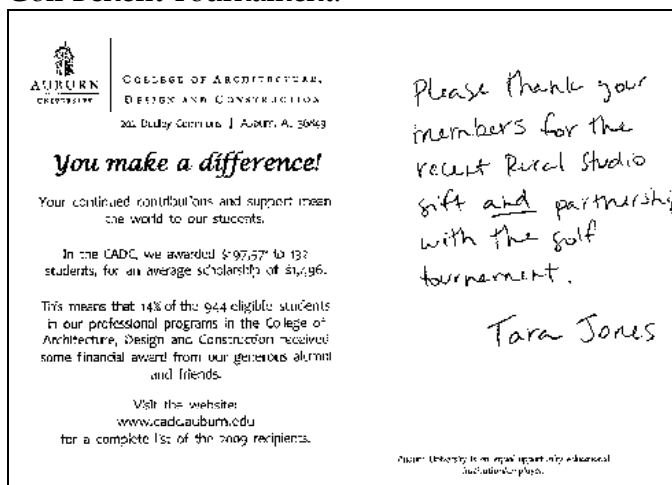 Golf Benefit Tournament.
AUBURN
UNIVERSITY
COLLEGE OF ARCHITECTURE,
DESIGN AND CONSTRUCTION
202 Dudley Commons | Auburn, AL 36849
You make a difference!
Your continued contributions and support mean
the world to our students.
In the CADC, we awarded $197,571 to 132
students, for an average scholarship of $1,496.
This means that 14% of the 944 eligible students
in our professional programs in the College of
Architecture, Design and Construction received
some financial award from our generous alumni
and friends.
Visit the website:
www.cadc.auburn.edu
for a complete list of the 2009 recipients.
Please thank your
members for the
recent Rural Studio
gift and partnership
with the golf
tournement.
Tara Jones
Auburn University is an equal opportunity educational
institution/employer.